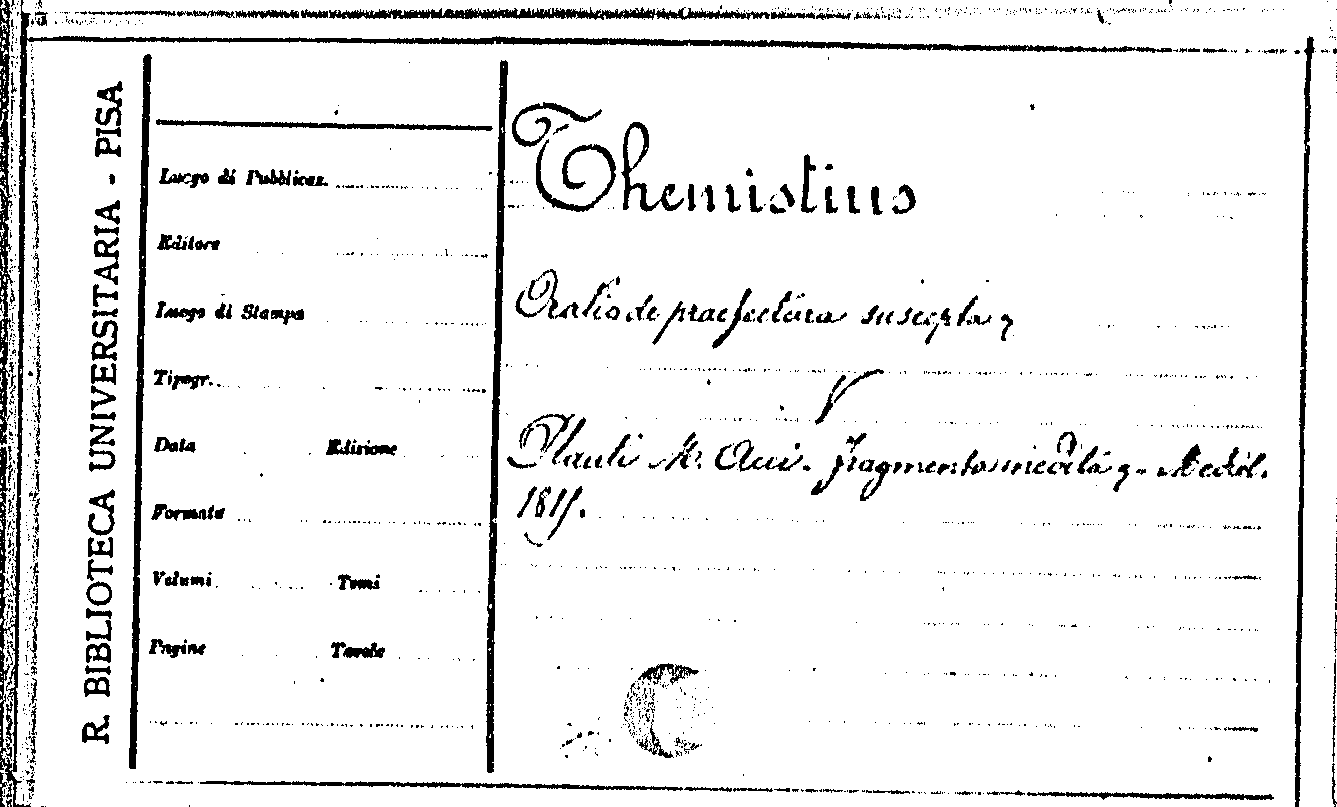 R. BIBLIOTECA UNIVERSITARIA - PISA
Luogo di Pubblicaz.
Editore
Luogo di Stampa
Tipogr.
Data Edizione
Formato
Volumi Tomi
Pagine Tavole
Themistius
Oratio de praefectura suscepta
V
Plauti M. Acci. fragmenta inedita Mediol.
1815.